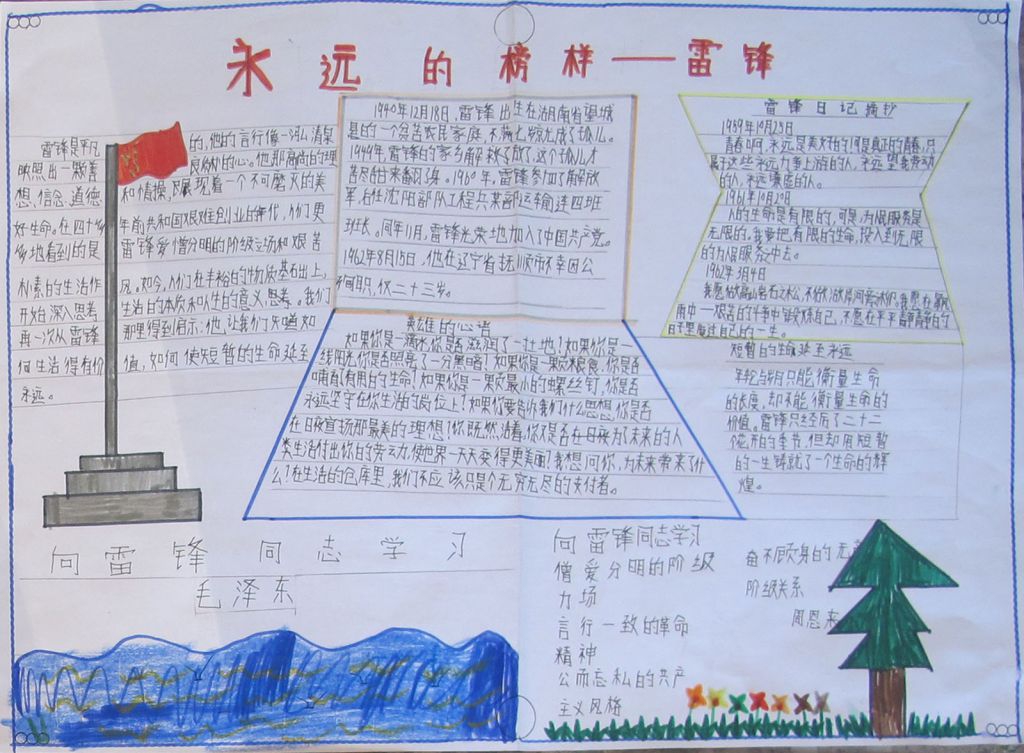 永远的榜样——雷锋
雷锋是平凡的,他的言行像一泓清泉
映照出一颗善良煅的心。他那高尚的理
想、信念、道德和情操,展现着一个不可磨灭的美
好生命。在四十多年前共和国艰难创业的年代,人们更
多地看到的是雷锋爱憎分明的阶级立场和艰苦
朴素的生活作风。如今,人们在丰裕的物质基石出上,
开始深入思考生活的本质和人生的意义思考。我们
再一次从雷锋那里得到启示:他,让我们知道如
何生活得有价值,如何使短暂的生命延至
永远。
1940年12月18日,雷锋出生在湖南省望城
县的一个贫苦农民家庭,不满七岁就成了孤儿。
1949年,雷锋的家乡解放了,这个孤儿才
苦尽甘来翻了身。1960年,雷锋参加了解放
军,在沈阳部队工程兵某部运输连四班
班长。同年11月,雷锋光荣地加入了中国共产党。
1962年8月15日,他在辽宁省抚顺市不幸因公
殉职,仅二十三岁。
雷锋日记摘抄
1959年10月25日
青春啊,永远是美好的!可是真正的青春,只
属于这些永远力争上游的人,永远忘我劳动
的人,永远谦虚的人。
1961年10月20日
人的生命是有限的,可是,为人民服务是
无限的,我要把有限的生命,投入到无限
的为人民服务中去。
1962年3月4日
我愿做高山岩石之松,不做湖岸河旁之柳。我愿在暴风
雨中——艰苦的斗争中锻炼自己,不愿在平平静静的
日子里度过自己的一生。
英雄的心语
如果你是一滴水,你是否滋润了一寸土地!如果你是一
线阳光,你是否照亮了一分黑暗!如果你是一颗粮食,你是否
哺育了有用的生命!如果你是一颗最小的螺丝钉,你是否
永远坚守在你生活的岗位上!如果你要告诉我们什么思想,你是否
在日夜宣扬那最美的理想!你既然活着,你又是否在日夜为了未来的人
类生活付出你的劳动,使世界一天天变得更美丽!我想问你,为未来带来了什
么!在生活的仓库里,我们不应该只是个无穷无尽的支付者。
短暂的生命延至永远
年轮与岁月只能衡量生命
的长度,却不能衡量生命的
价值。雷锋只经历了二十二
个花开的季节,但却用短暂
的一生铸就了一个生命的辉
煌。
向雷锋同志学习
毛泽东
向雷锋同志学习
憎爱分明的阶级
力场
言行一致的革命
精神
公而忘私的共产
主义风格
奋不顾身的无
阶级关系
周恩来